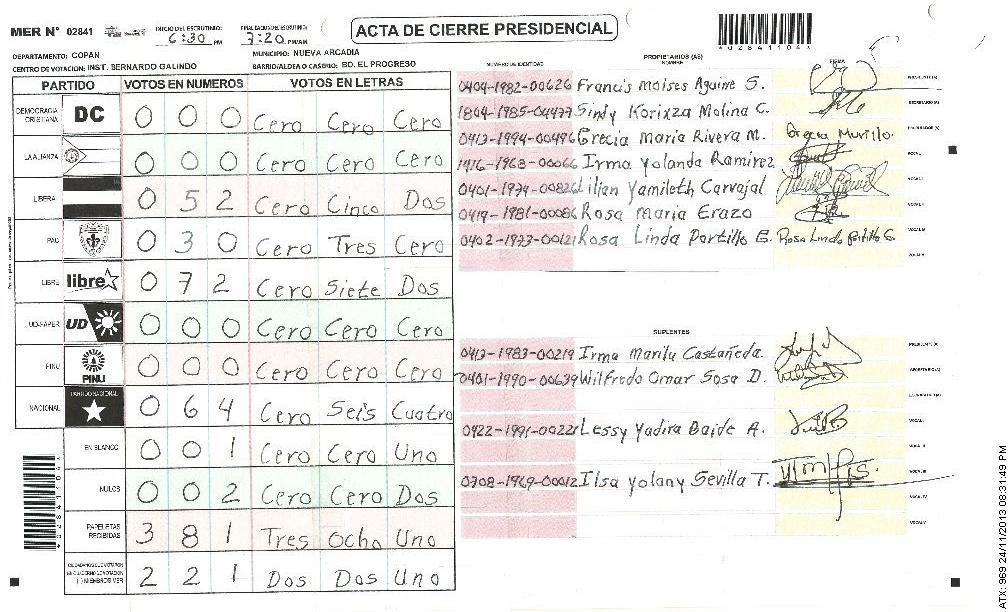 MER Nº 02841
INICIO DEL ESCRUTINIO: 6:30 PM
FINALIZACION DEL ESCRUTINIO: 7:20 PM/AM
ACTA DE CIERRE PRESIDENCIAL
028411041
DEPARTAMENTO: COPAN
MUNICIPIO: NUEVA ARCADIA
CENTRO DE VOTACION: INST. BERNARDO GALINDO
BARRIO/ALDEA O CASERIO: BO. EL PROGRESO
PARTIDO VOTOS EN NUMEROS VOTOS EN LETRAS
DEMOCRACIA CRISTIANA DC 0 0 0 Cero Cero Cero
LA ALIANZA 0 0 0 Cero Cero Cero
LIBERA 0 5 2 Cero Cinco Dos
PAC 0 3 0 Cero Tres Cero
LIBRE libre 0 7 2 Cero Siete Dos
UD-FAPER UD 0 0 0 Cero Cero Cero
PINU PINU 0 0 0 Cero Cero Cero
NACIONAL PARTIDO NACIONAL 0 6 4 Cero Seis Cuatro
EN BLANCO 0 0 1 Cero Cero Uno
NULOS 0 0 2 Cero Cero Dos
PAPELETAS RECIBIDAS 3 8 1 Tres Ocho Uno
CIUDADANOS QUE VOTARON EN CUADERNO DE VOTACION (-) MIEMBROS MER 2 2 1 Dos Dos Uno
NUMERO DE IDENTIDAD
PROPIETARIOS (AS)
NOMBRE
FIRMA
0404-1982-00626 Francis Moises Aguire S. PRESIDENTE (A)
1804-1985-04477 Sindy Korixza Molina C. SECRETARIO (A)
0413-1994-00496 Grecia Maria Rivera M. Grecia Murillo. ESCRUTADOR (A)
1416-1968-00066 Irma Yolanda Ramirez VOCAL I
0401-1974-00826 Lilian Yamileth Carvajal VOCAL II
0419-1981-00086 Rosa Maria Erazo VOCAL III
0402-1973-00121 Rosa Linda Portillo E. Rosa Linda Portillo E. VOCAL IV
VOCAL V
SUPLENTES
0413-1983-00219 Irma Marilu Castañeda. PRESIDENTE (A)
0401-1990-00639 Wilfredo Omar Sosa D. SECRETARIO (A)
ESCRUTADOR (A)
0422-1991-00221 Lessy Yadira Baide A. VOCAL I
VOCAL II
0708-1969-00012 Ilsa Yolany Sevilla T. VOCAL III
VOCAL IV
VOCAL V
ATX: 969 24/11/2013 08:31:49 PM